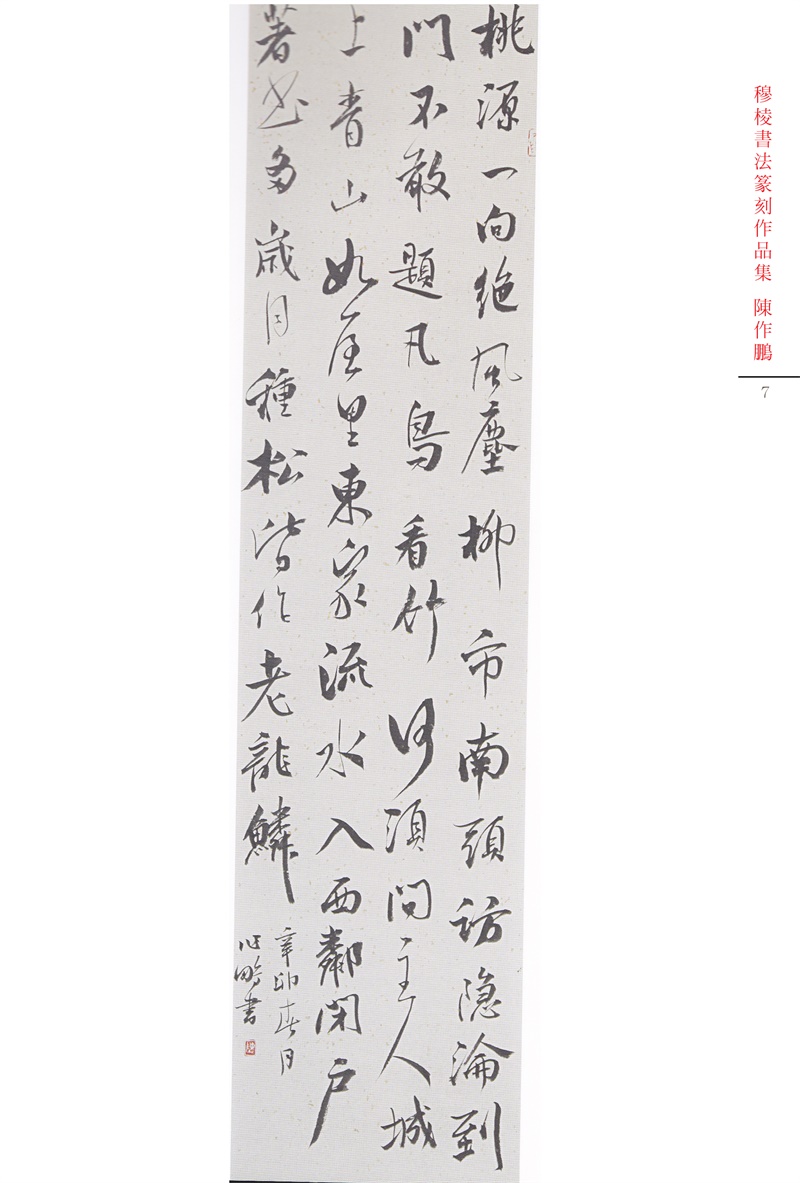 桃源一向絶風塵柳市南頭訪隐淪到
門不敢題凡鳥看竹何須問主人城
上青山如屋里東家流水入西鄰閉户
著书多歲月種松皆作老龍鱗
辛卯春月
書
穆棱書法篆刻作品集 陳作鵬
7